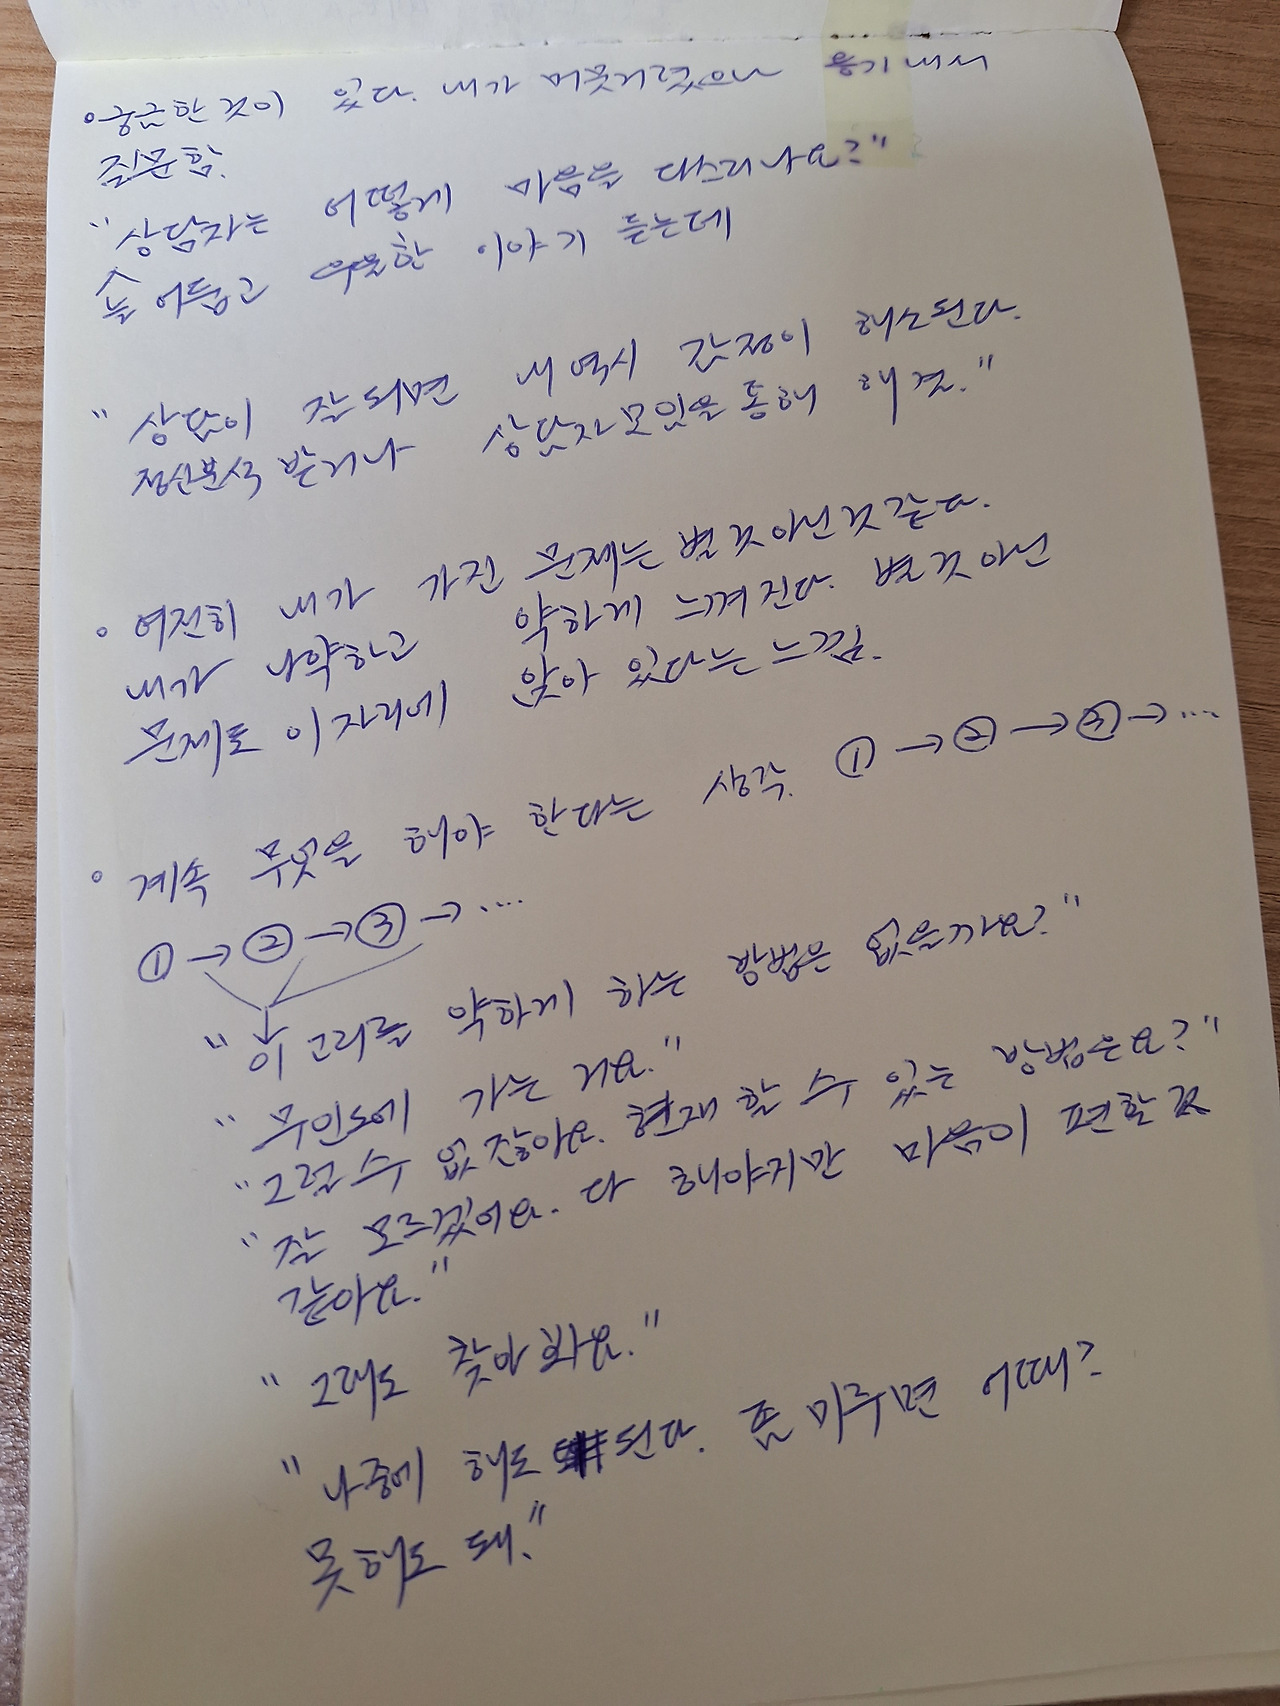 ◦ 궁금한 것이 있다. 내가 머뭇거렸으나 용기내서
질문함.
"상담자는 어떻게 마음을 다스리나요?"
늘 어둡고 우울한 이야기 듣는데
"상담이 잘 되면 내 역시 감정이 해소된다.
정신분석 받거나 상담자 모임을 통해 해결."
◦ 여전히 내가 가진 문제는 별것 아닌 것 같다.
내가 나약하고 약하게 느껴진다. 별것 아닌
문제로 이 자리에 앉아 있다는 느낌.
◦ 계속 무엇을 해야 한다는 생각. ① → ② → ③ → ...
① → ② → ③ → ....
"이 고리를 약하게 하는 방법은 없을까요?"
"무인도에 가는 거요."
"그럴 수 없잖아요. 현재 할 수 있는 방법은요?"
"잘 모르겠어요. 다 해야지만 마음이 편할 것
같아요."
"그래도 찾아 봐요."
"나중에 해도 된다. 좀 미루면 어때?
못 해도 돼."